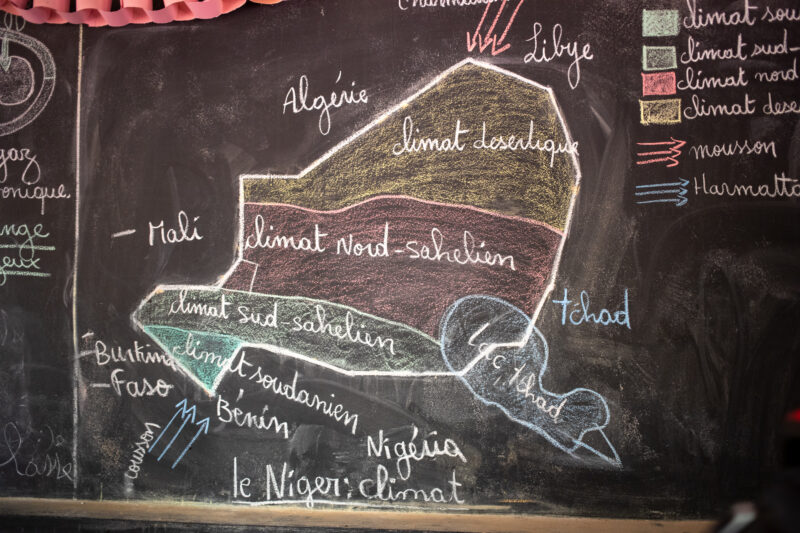 gaz
onique.
nge
jeux
Algérie
Libye
climat desertique
Mali
climat Nord-sahelien
climat sud-sahelien
climat soudanien
Burkina
Faso
Bénin
Nigéria
tchad
Lac tchad
mousson
le Niger: climat
climat sou
climat sud-
climat nord
climat dese
mousson
Harmatta